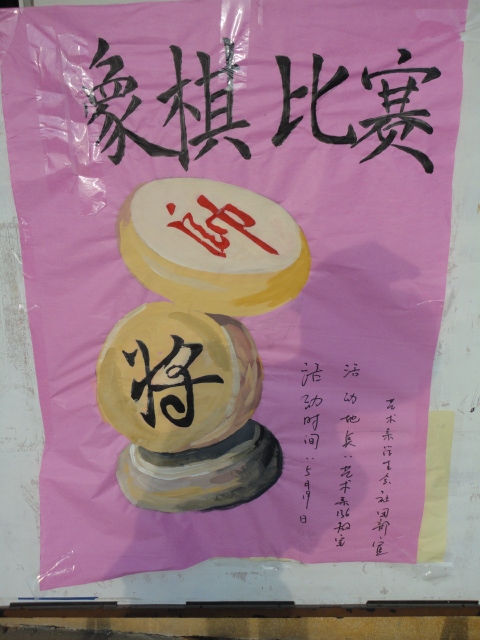 象棋比赛
帥
将
活动时间：5月19日
活动地点：艺术系136教室
艺术系学生会社团部宣